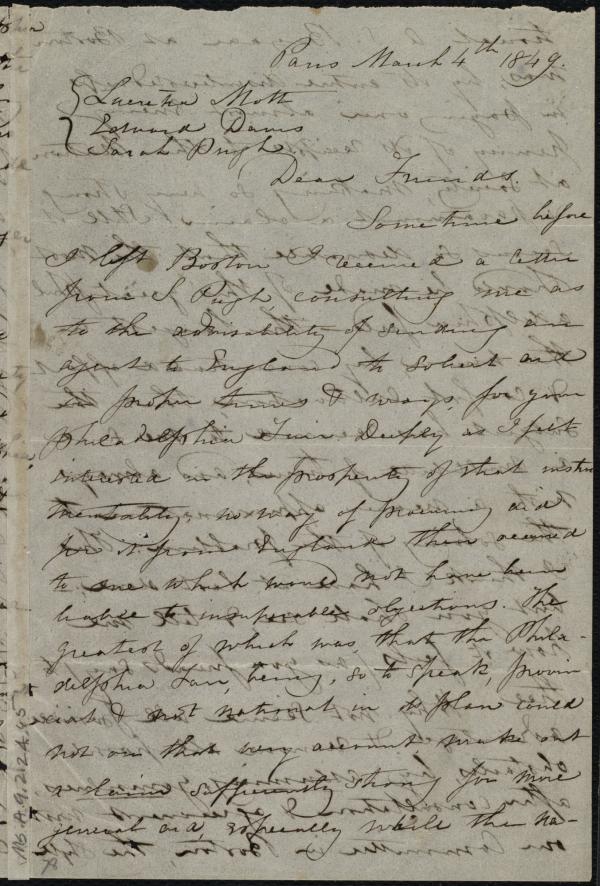 Paris March 4th 1849.
Lucretia Mott
Edward Davis
Sarah Pugh
Dear Friends,
Sometime before
I left Boston I received a letter
from S Pugh consulting me as
to the advisability of sending an
agent to England to solicit aid
in proper times & ways, for your
Philadelphia Fair. Deeply as I felt
interested in the prosperity of that instru
mentality, no way of procuring aid
for it from England then occurred
to me which would not have been
liable to insuperable objections. The
greatest of which was, that the Phila-
delphia Fair, being, so to speak, provin
cial & not national in its plan could
not on that very account make out
a claim sufficiently strong for more
general aid, especially while the Na-
Ms A.9.2.24.45